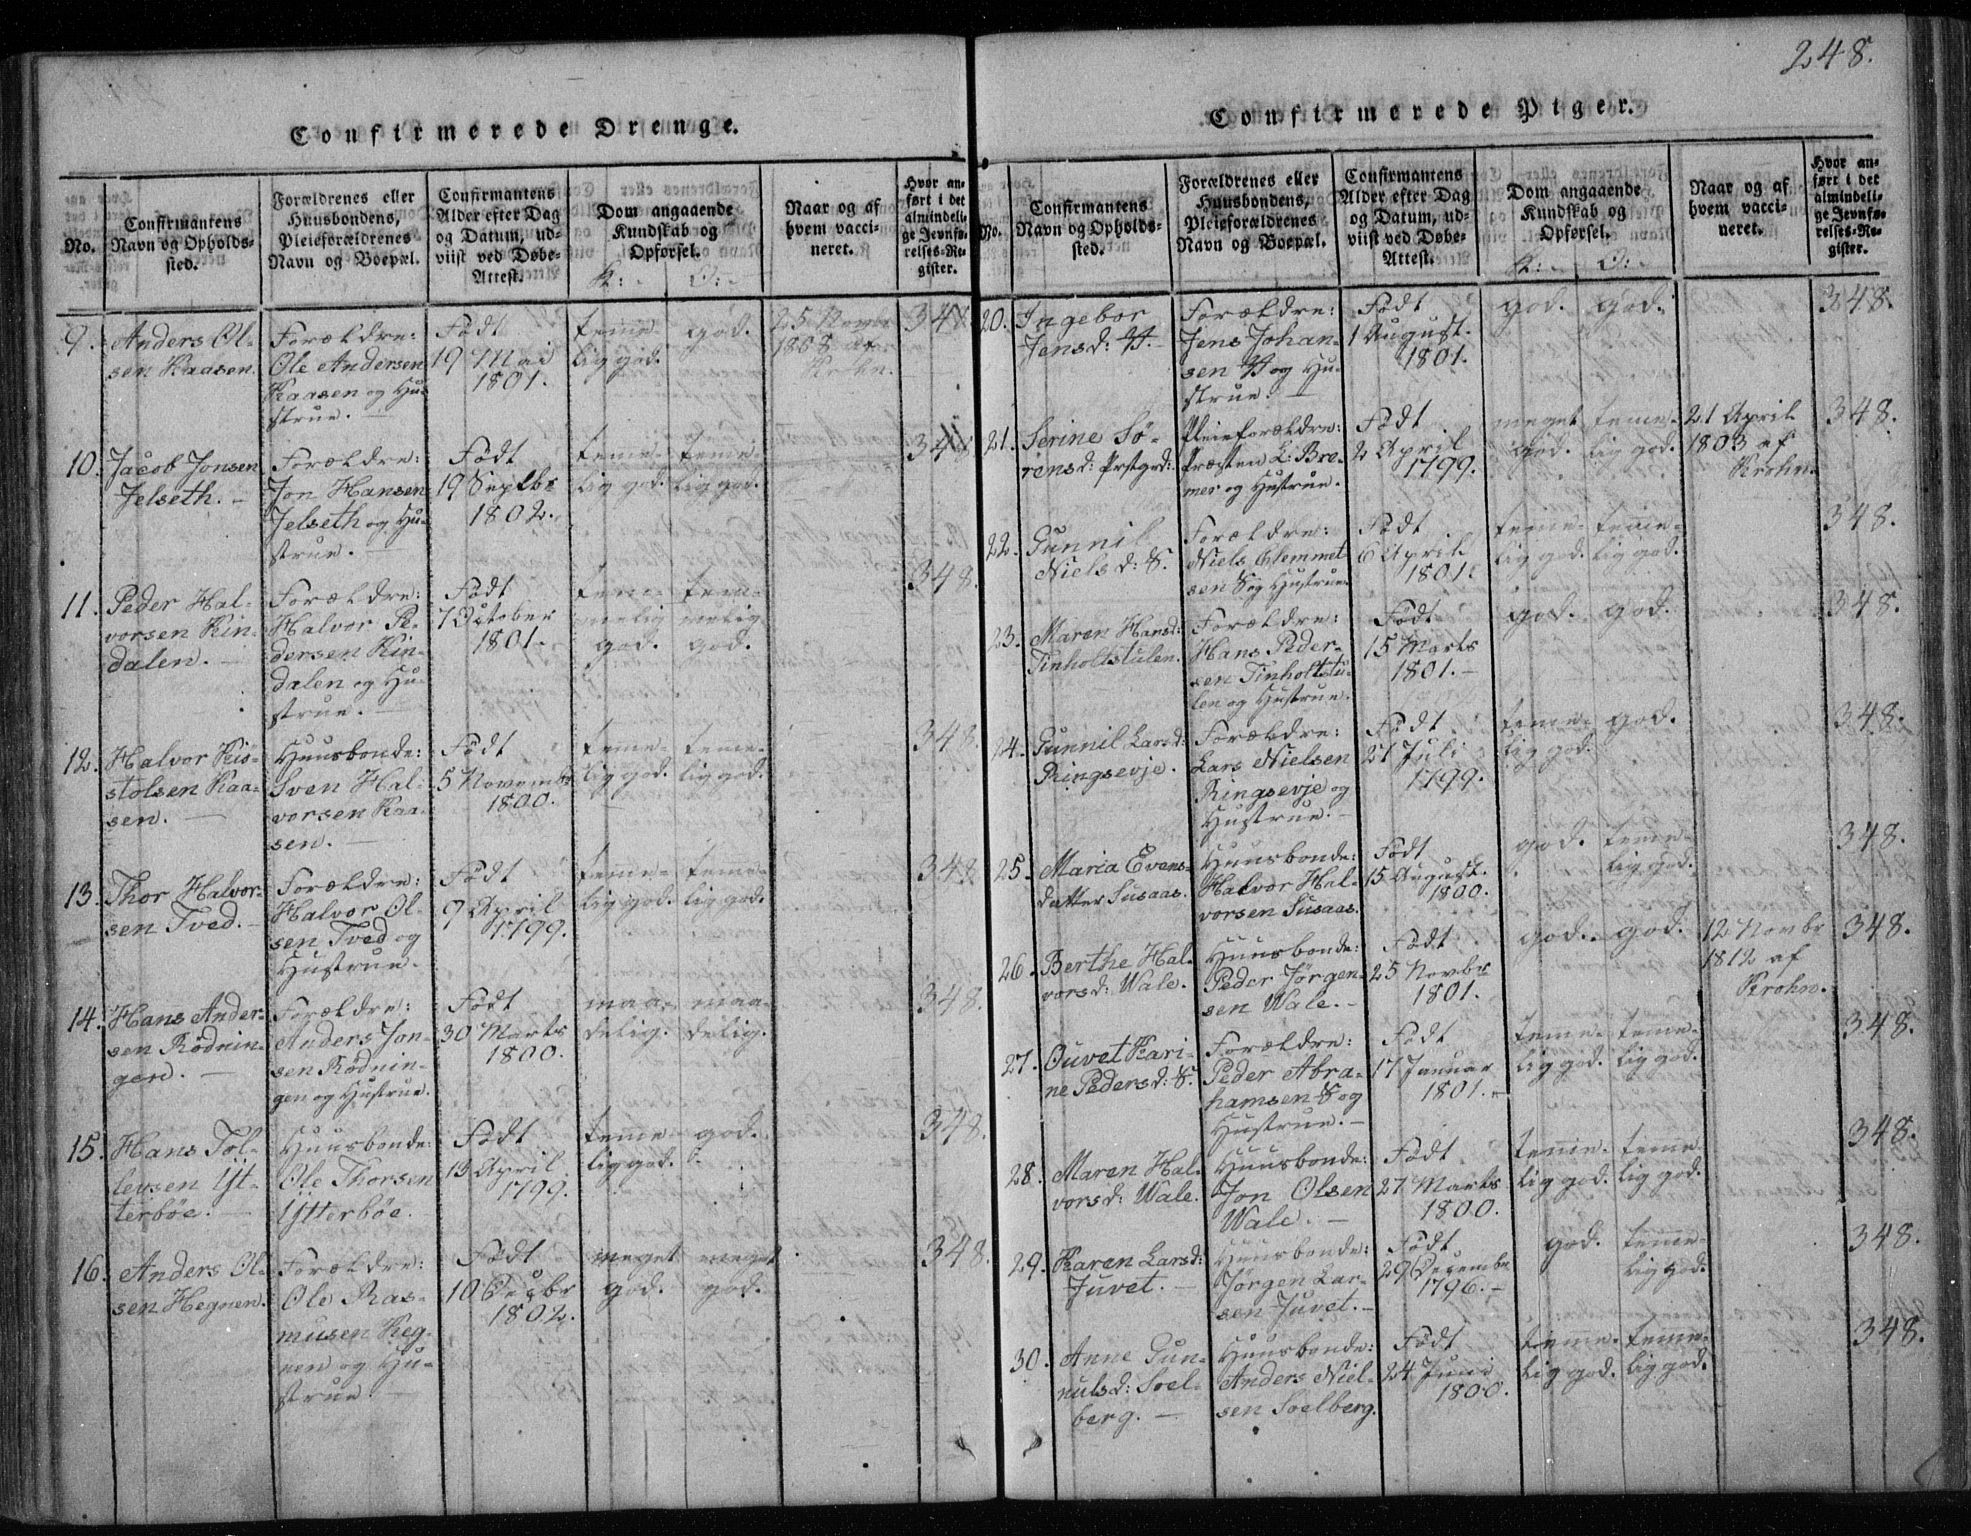 248.
Confirmerede Drenge.
No.
Confirmantens
Navn og Opholds-
sted.
Forældrenes eller
Huusbondens,
Pleieforældrenes
Navn og Boepæl.
Confirmantens
Alder efter Dag
og Datum, ud-
viist ved Døbe-
Attest.
Dom angaaende
Kundskab og
Opførsel.
K:- O:-
Naar og af
hvem vacci-
neret.
Hvor an-
ført i det
almindeli-
ge Jevnfø-
relses-Re-
gister.
9.
Anders Ol-
sen Kaasen.
Forældre:
Ole Andersen
Kaasen og Hu-
strue.
Født
19 Mai
1801.
teme-
lig god.
god.
25 Novbr
1808 af
Krohn.
348.
10.
Jacob Jonsen
Jelseth.
Forældre:
Jon Hansen
Jelseth og Hu-
strue.
Født
19 Septbr
1802.
teme-
lig god.
teme-
lig god.
348
11.
Peder Hal-
vorsen Kin-
dalen.
Forældre:
Halvor Pe-
dersen Kin-
dalen og Hu-
strue.
Født
7 October
1801.
tem-
melig
god.
tem-
melig
god.
348.
12.
Halvor Kis-
stolsen Kaa-
sen.
Huusbonde:
Sven Hal-
vorsen Kaa-
sen.
Født
5 Novembr
1800.
teme-
lig god.
teme-
lig god.
348.
13.
Thor Halvor-
sen Tved.
Forældre:
Halvor Ol-
sen Tved og
Hustrue.
Født
9 April
1799.
teme-
lig god.
teme-
lig god.
348
14.
Hans Ander-
sen Rødnin-
gen.
Forældre:
Anders Jon-
sen Rødnin-
gen og Hustrue.
Født
30 Marts
1800.
maa-
delig.
maa-
delig.
348.
15.
Hans Tol-
levsen Yt-
terbøe.
Huusbonde:
Ole Thorsen
Ytterbøe.
Født
13 April
1799.
teme-
lig god.
god.
348.
16.
Anders Ol-
sen Hegnen.
Forældre:
Ole Ras-
musen Heg-
nen og Hu-
strue.
Født
10 Decbr
1802.
meget
god.
meget
god.
348.
Confirmerede Piger.
No.
Confirmantens
Navn og Opholds-
sted.
Forældrenes eller
Huusbondens,
Pleieforældrenes
Navn og Boepæl.
Confirmantens
Alder efter Dag
og Datum, ud-
viist ved Døbe-
Attest.
Dom angaaende
Kundskab og
Opførsel.
K:- O:-
Naar og af
hvem vacci-
neret.
Hvor an-
ført i det
almindeli-
ge Jevnfø-
relses-Re-
gister.
20.
Ingebor
Jensd:
Forældre:
Jens Johan-
sen og Hu-
strue.
Født
1 August.
1801.
god.
god.
348.
21.
Serine Sø-
rensd: Prstgrd:
Pleieforældre:
Præsten L: Bre-
mer og Hustrue.
Født
2 April
1799.
meget
god.
teme-
lig god.
21 April
1803 af
Krohn.
348.
22.
Gunnil
Nielsd: S.
Forældre:
Niels Clemmet
sen S og Hustrue.
Født
6 April
1801.
teme-
lig god.
teme-
lig god.
348.
23.
Maren Hansd:
Tinholtstulen.
Forældre:
Hans Peder-
sen Tinholtstu-
len og Hustrue.
Født
15 Marts
1801.
god.
god.
348.
24.
Gunnil Larsd:
Ringsevje.
Forældre:
Lars Nielsen
Ringsevje og
Hustrue.
Født
21 Juli
1799.
teme-
lig god.
god.
348.
25.
Maria Evens-
datter Susaas.
Huusbonde:
Halvor Hal-
vorsen Susaas.
Født
15 August.
1800.
god.
teme-
lig god.
348.
26.
Berthe Hal-
vorsd: Wale.
Huusbonde:
Peder Jørgen-
sen Wale.
Født
25 Novbr
1801.
god.
god.
12 Novbr
1812 af
Krohn.
348.
27.
Ouvet Kari-
ne Pedersd: S.
Forældre:
Peder Abra-
hamsen S og
Hustrue.
Født
17 Januar
1801.
teme-
lig god.
teme-
lig god.
348.
28.
Maren Hal-
vorsd: Wale.
Huusbonde:
Jon Olsen
Wale.
Født
27 Marts
1800.
teme-
lig god.
teme
lig god.
348.
29.
Karen Larsd:
Juvet.
Huusbonde:
Jørgen Lar-
sen Juvet.
Født
29 Decembr
1796.
god.
teme-
lig god.
348.
30.
Anne Gun-
nulsd: Soel-
berg.
Huusbonde:
Anders Niel-
sen Soelberg.
Født
24 Juni
1800.
teme-
lig god.
teme-
lig god.
348.